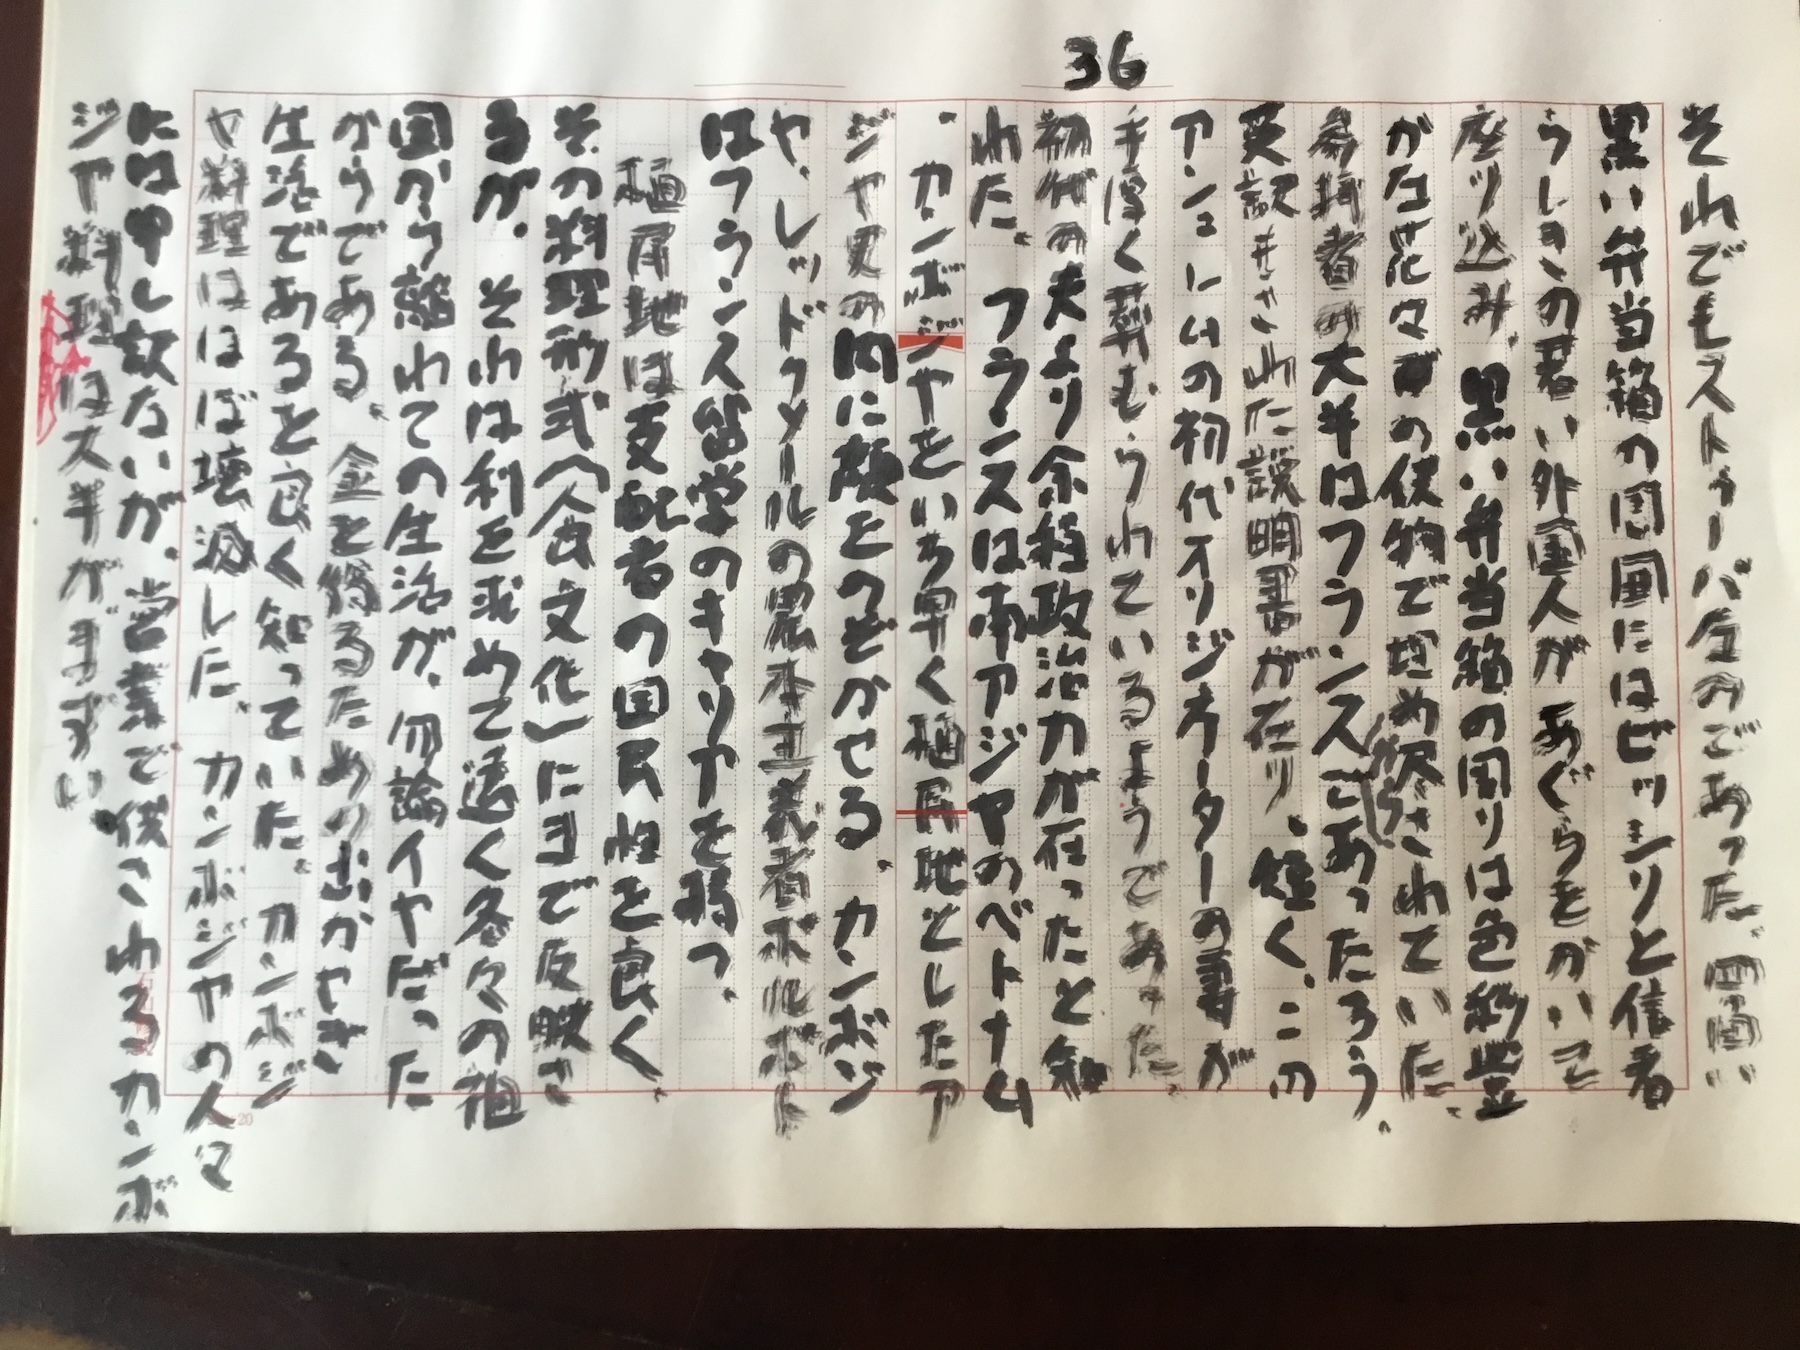 36
それでもストゥーパなのであった。四角い
黒い弁当箱の周囲にはビッシリと信者
らしきの若い外国人があぐらをかいて
座り込み、黒い弁当箱の周りは色彩豊
かな花々の供物で埋め尽くされていた
参拝者の大半はフランスからであったろう、
英訳された説明書が在り、短く、この
アシュラムの初代オリジネーターの妻が
手厚く葬むられているようであった。
初代の夫より余程政治力が在ったと知
れた。フランスは南アジヤのベトナム
、カンボジヤをいち早く植民地としたア
ジヤ史の内に顔をのぞかせる。カンボジ
ヤ、レッドクメールの農本主義者ポルポト
はフランス留学のキャリヤを持つ、
植民地は支配者の国民性を良く、
その料理形式(食文化)にまで反映さ
るが、それは利を求めて遠く各々の祖
国から離れての生活が、勿論イヤだった
からである。金を得るためのおかやき
生活であるを良く知っていた。カンボジ
ヤ料理はほぼ壊滅した。カンボジヤの人々
には申し訳ないが、営業で供されるカンボ
ジヤ料理は大半がまずい
20